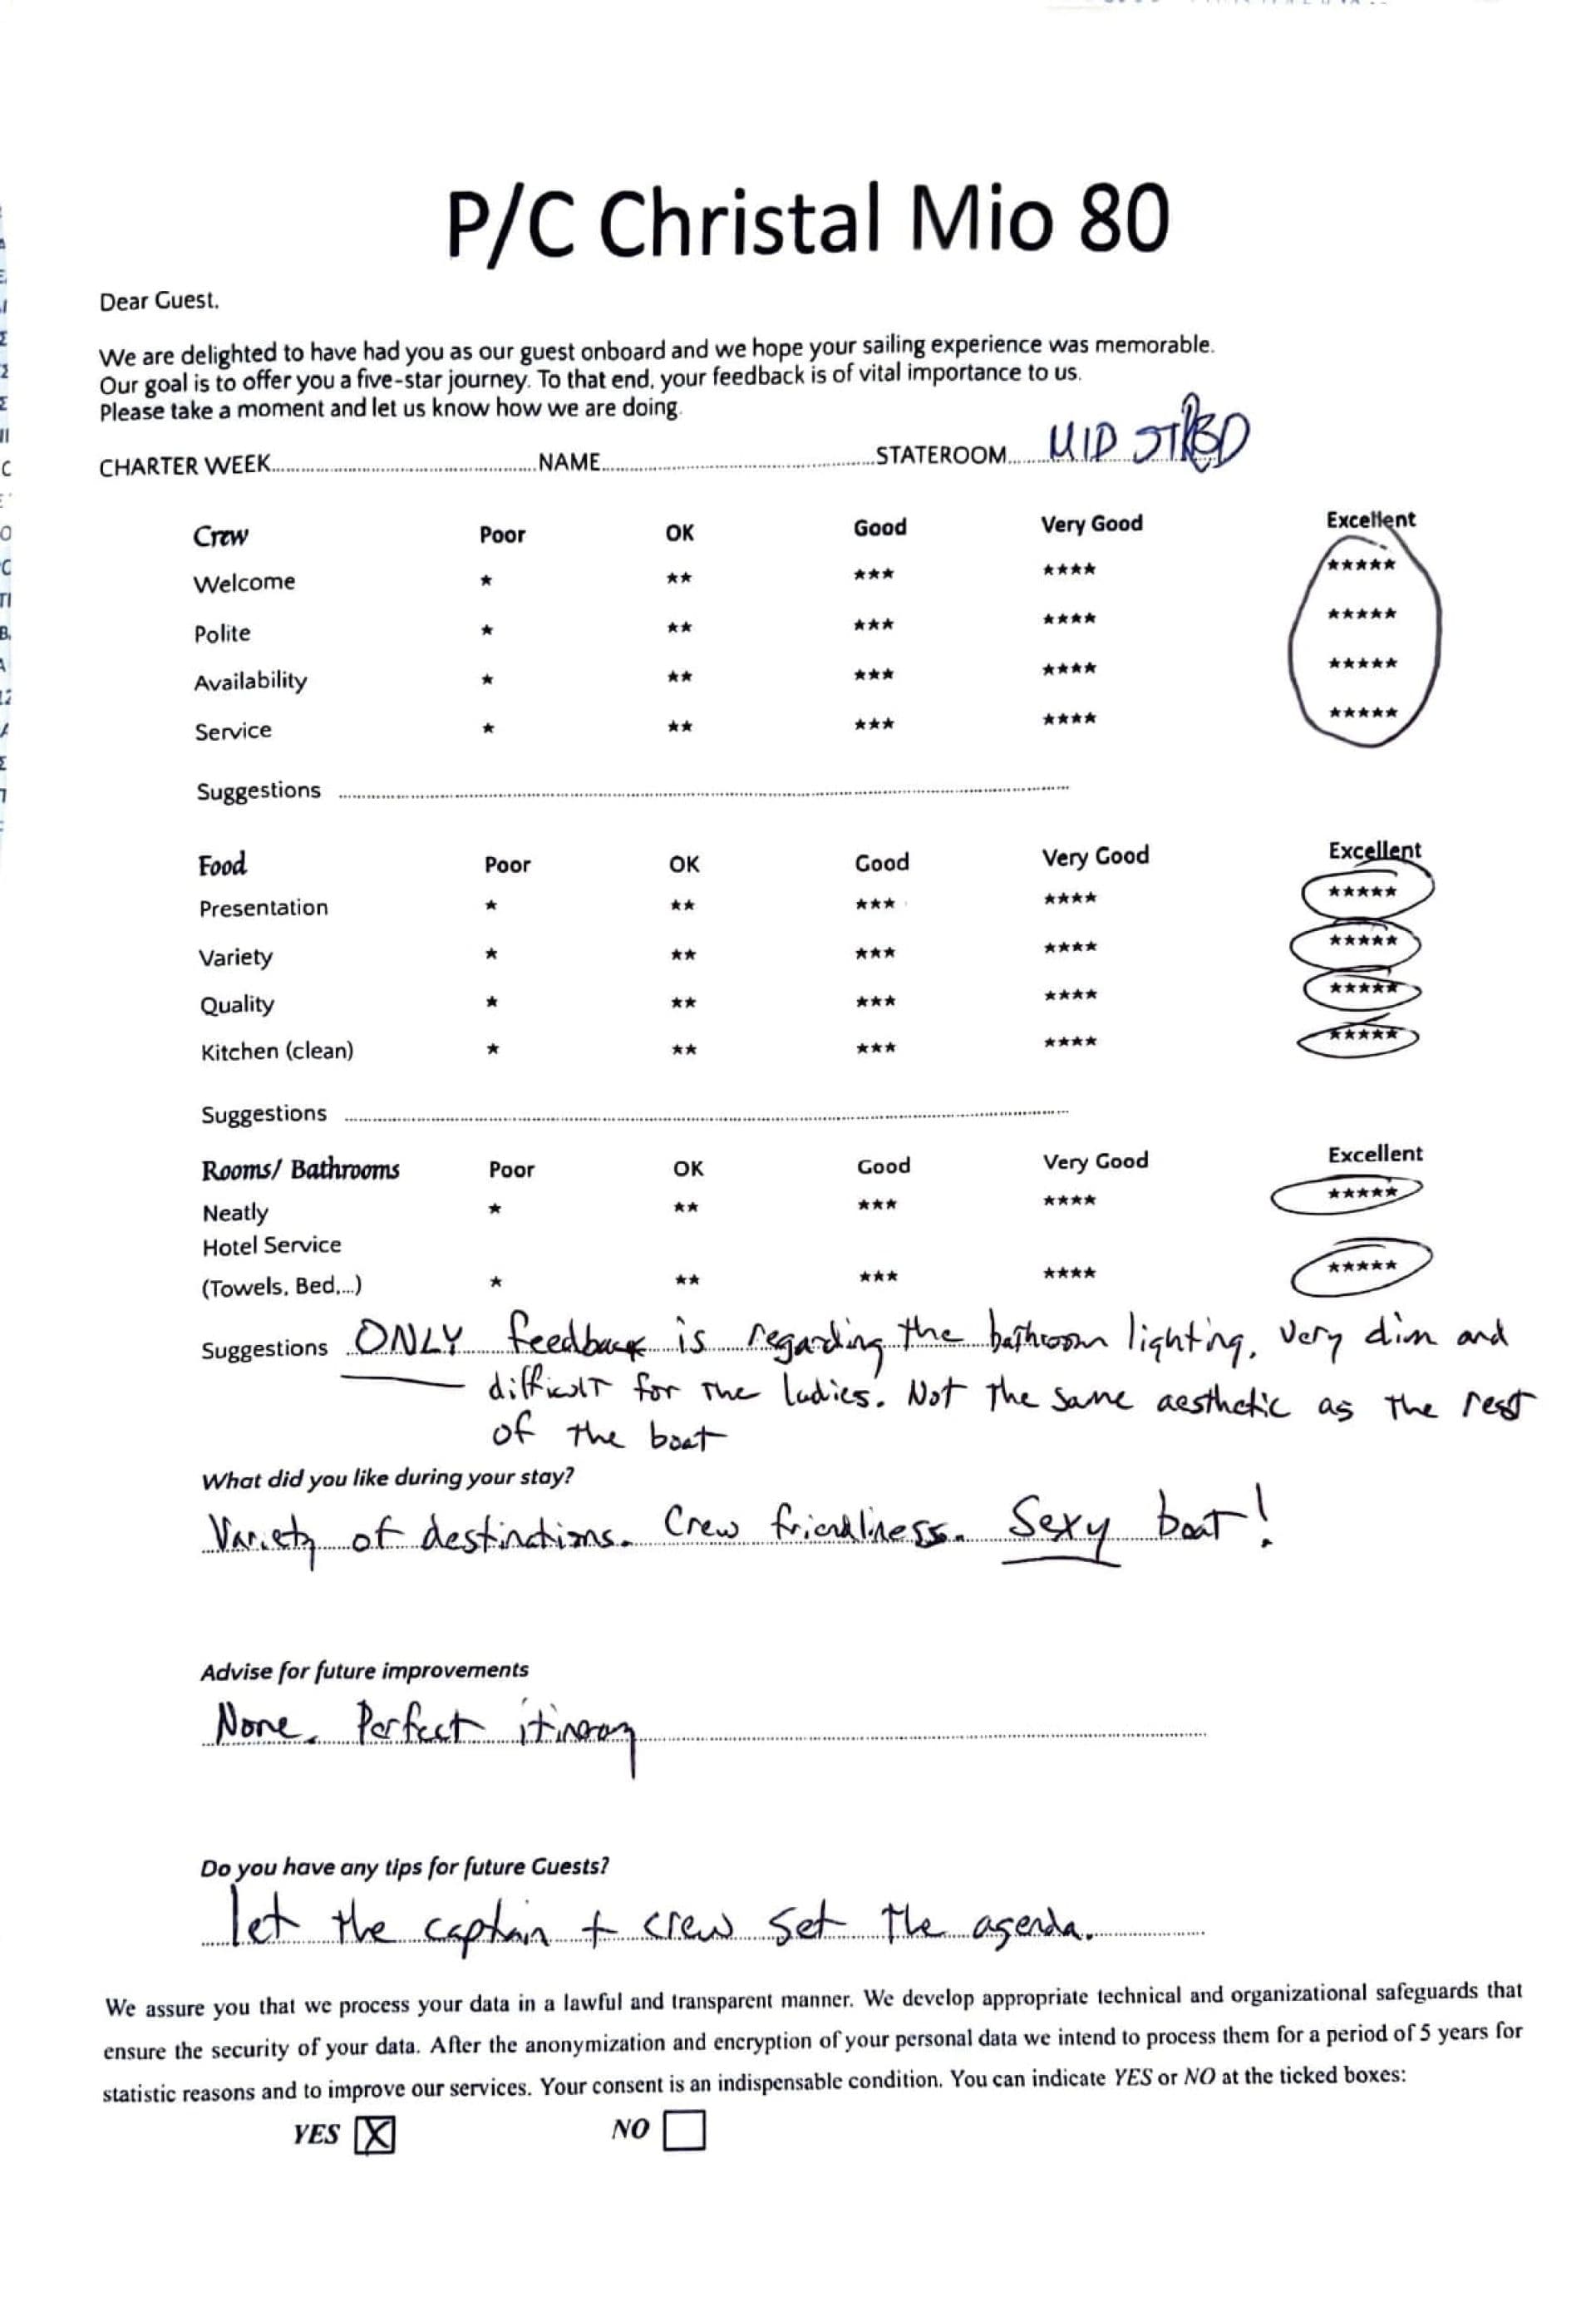 P/C Christal Mio 80
Dear Guest.
We are delighted to have had you as our guest onboard and we hope your sailing experience was memorable.
Our goal is to offer you a five-star journey. To that end, your feedback is of vital importance to us.
Please take a moment and let us know how we are doing.
CHARTER WEEK..........NAME..........STATEROOM..... MID STRBD
Crew Poor OK Good Very Good Excellent
Welcome * ** *** **** *****
Polite * ** *** **** *****
Availability * ** *** **** *****
Service * ** *** **** *****
Suggestions ..........
Food Poor OK Good Very Good Excellent
Presentation * ** *** **** *****
Variety * ** *** **** *****
Quality * ** *** **** *****
Kitchen (clean) * ** *** **** *****
Suggestions ..........
Rooms/ Bathrooms Poor OK Good Very Good Excellent
Neatly * ** *** **** *****
Hotel Service
(Towels, Bed,...) * ** *** **** *****
Suggestions ONLY feedback is regarding the bathroom lighting, very dim and
difficult for the ladies. Not the same aesthetic as the rest
of the boat
What did you like during your stay?
Variety of destinations. Crew friendliness. Sexy boat!
Advise for future improvements
None. Perfect itinerary
Do you have any tips for future Guests?
let the captain + crew set the agenda.
We assure you that we process your data in a lawful and transparent manner. We develop appropriate technical and organizational safeguards that
ensure the security of your data. After the anonymization and encryption of your personal data we intend to process them for a period of 5 years for
statistic reasons and to improve our services. Your consent is an indispensable condition. You can indicate YES or NO at the ticked boxes:
YES X NO